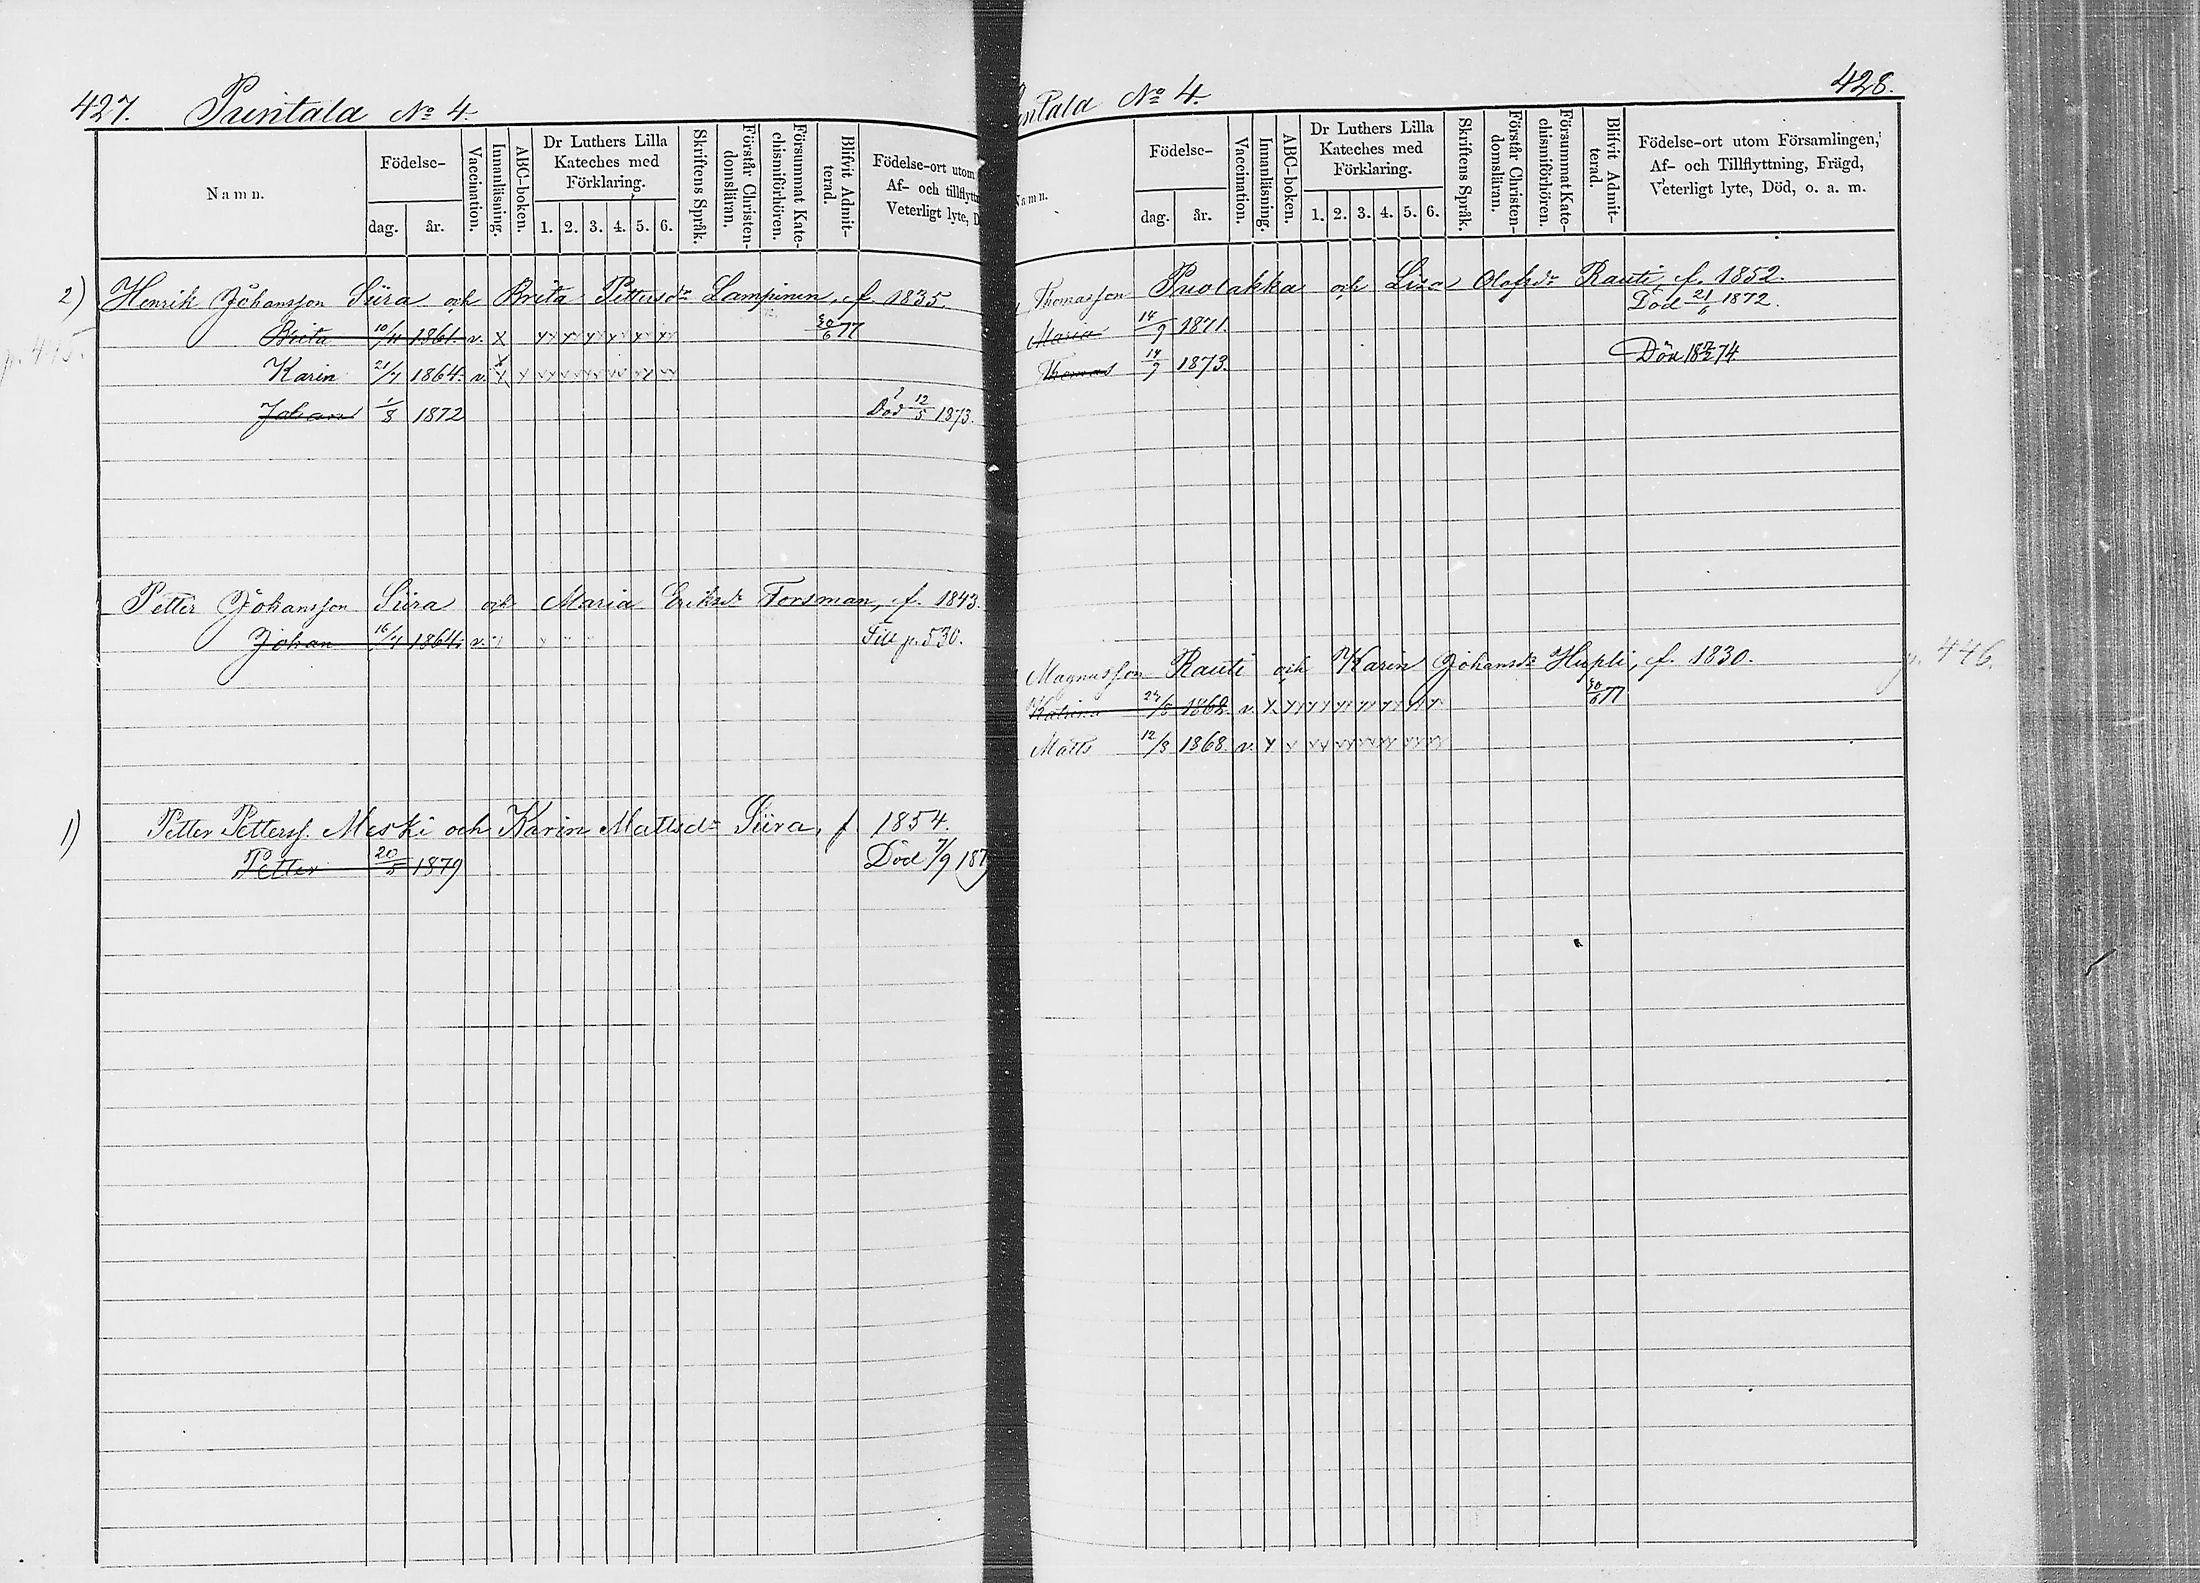 427. Puintala No 4.
Namn.
Födelse-
dag. år.
Vaccination.
Innanläsning.
ABC-boken.
Dr Luthers Lilla
Kateches med
Förklaring.
1. 2. 3. 4. 5. 6.
Skriftens Språk.
Förstår Christen-
domsläran.
Försummat Kate-
chismiförhören.
Blifvit Admit-
terad.
Födelse-ort utom
Af- och tillflytt
Veterligt lyte, D
2) Henrik Johansson Siira och Brita Pettersdr Lampinen, f. 1835.
Brita 10/4 1861. v. x 30/6 77
p. 415.
Karin 21/4 1864. v. x
Johan 1/8 1872 Död 12/5 1873.
Petter Johansson Siira och Maria Eriksdr Forsman, f. 1843.
Johan 16/4 1864. v. Till p. 530.
1) Petter Petterss. Meski och Karin Mattsdr Siira, f. 1854.
Petter 20/5 1879 Död 7/9 187
ntala No 4. 428.
Namn.
Födelse-
dag. år.
Vaccination.
Innanläsning.
ABC-boken.
Dr Luthers Lilla
Kateches med
Förklaring.
1. 2. 3. 4. 5. 6.
Skriftens Språk.
Förstår Christen-
domsläran.
Försummat Kate-
chismiförhören.
Blifvit Admit-
terad.
Födelse-ort utom Församlingen,
Af- och Tillflyttning, Frägd,
Veterligt lyte, Död, o. a. m.
Thomasson Puolakka och Lisa Olofsdr Rauti, f. 1852.
Maria 14/9 1871. Död 21/6 1872.
Thomas 14/9 1873. Död 18 7/2 74
Magnusson Rauti och Karin Johansdr Hupli, f. 1830. p. 446.
Katrina 1862. v. x 30/6 77
Matts 12/3 1868. v. x